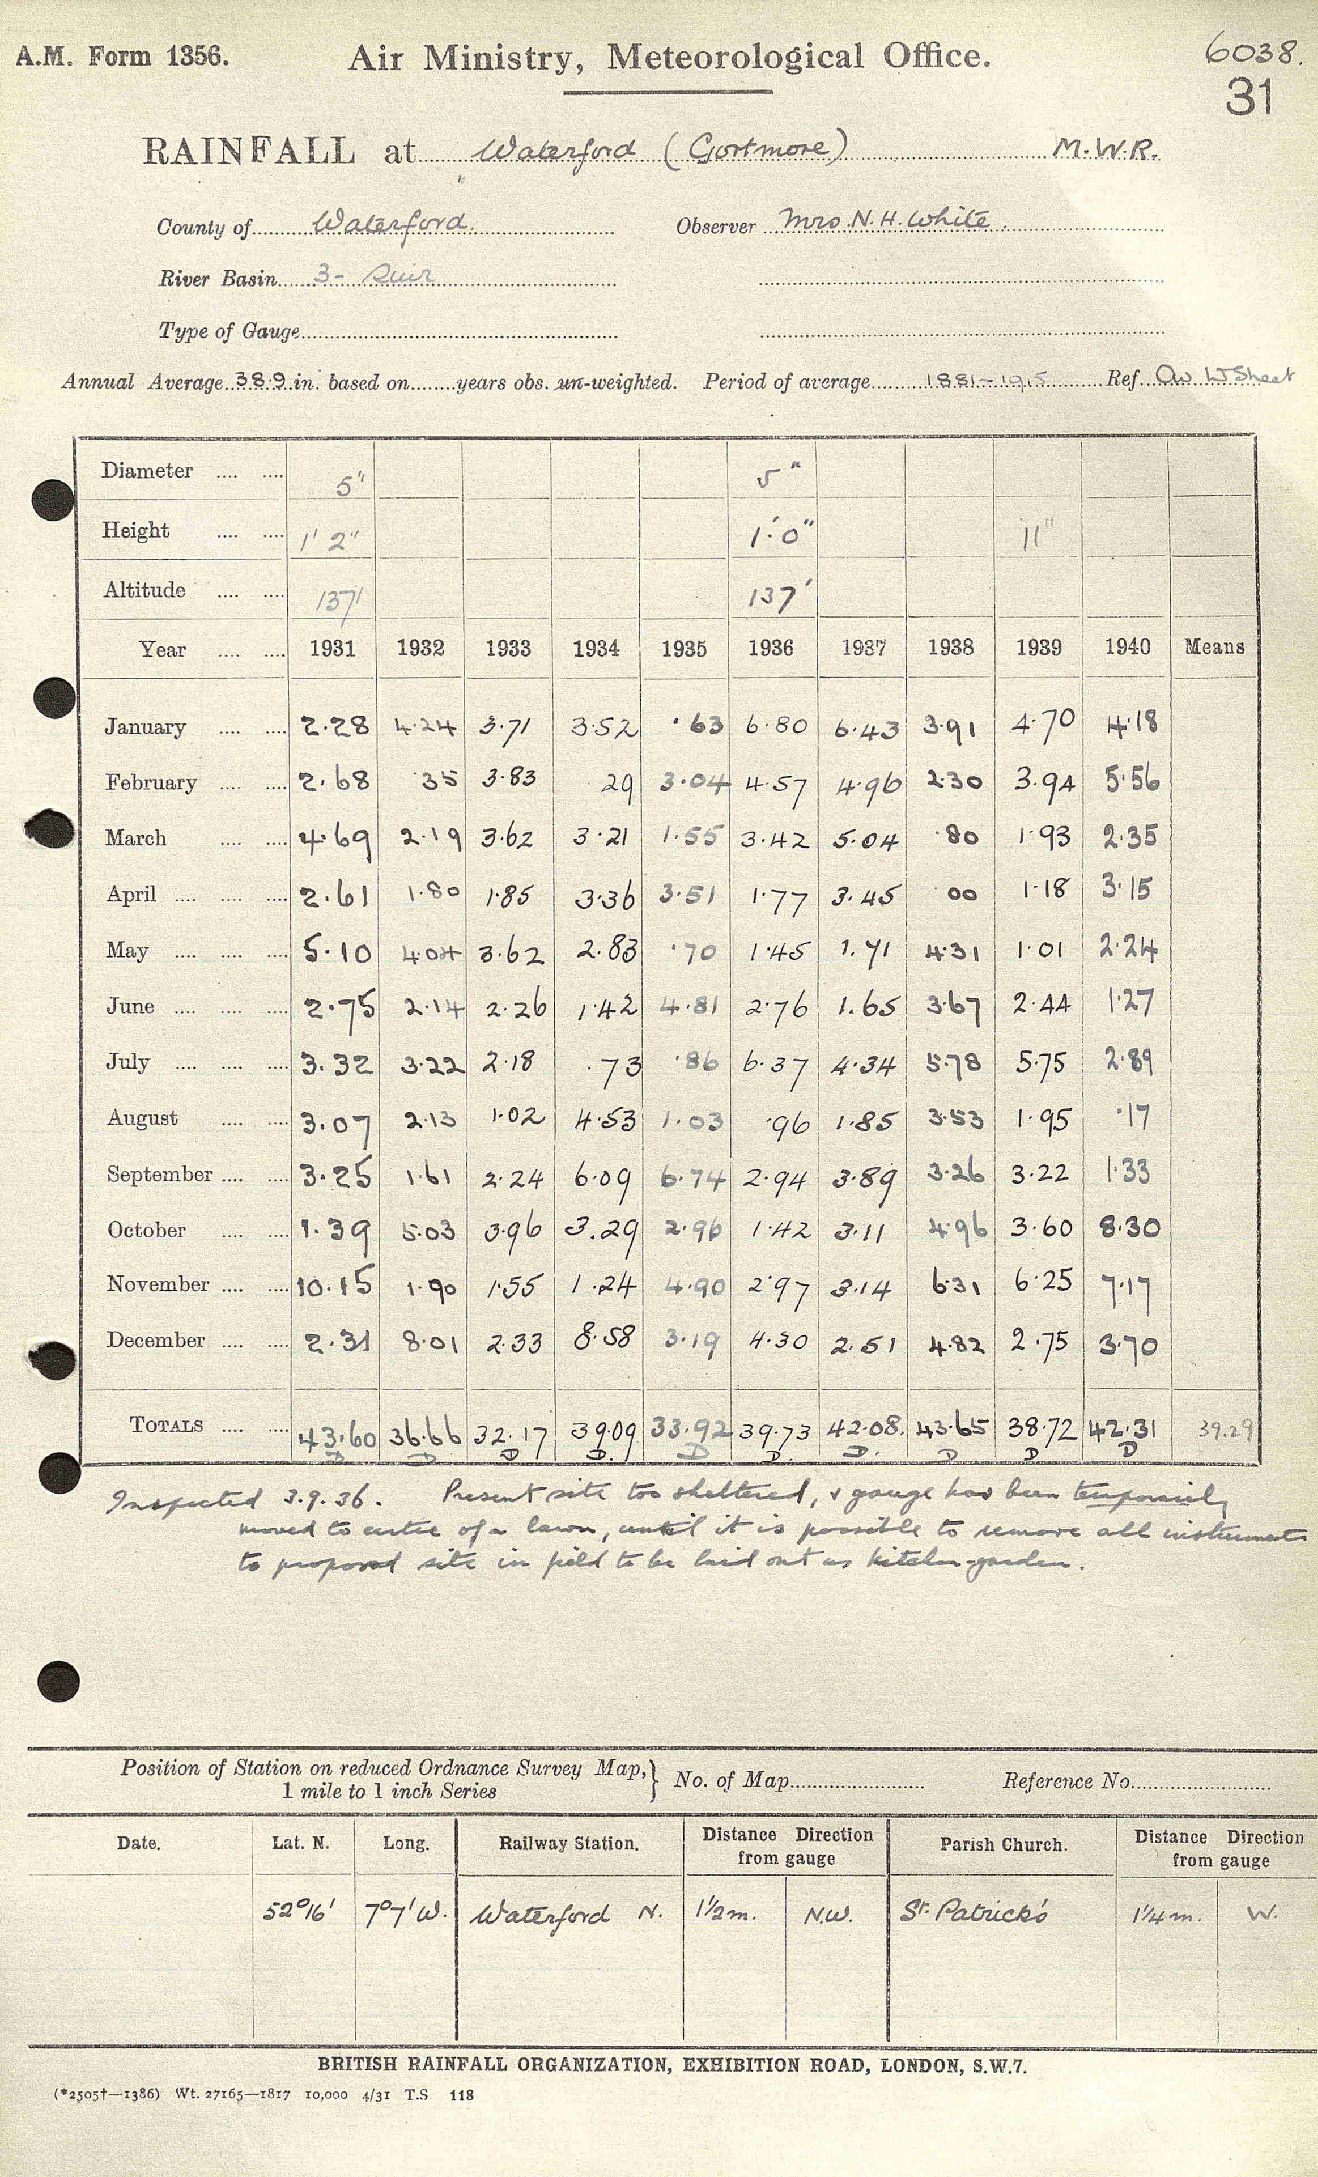 A.M. Form 1356. Air Ministry, Meteorological Office. 6038.
31
RAINFALL at Waterford (Gortmore) M.W.R.
County of Waterford. Observer Mrs N.H. White.
River Basin 3- Suir
Type of Gauge
Annual Average 38.9 in. based on years obs. un-weighted. Period of average 1881-1915 Ref. Av. W Sheet
Diameter 5" 5"
Height 1' 2" 1'.0" 11"
Altitude 137' 137'
Year 1931 1932 1933 1934 1935 1936 1937 1938 1939 1940 Means
January 2.28 4.24 3.71 3.52 .63 6.80 6.43 3.91 4.70 4.18
February 2.68 .35 3.83 .29 3.04 4.57 4.96 2.30 3.94 5.56
March 4.69 2.19 3.62 3.21 1.55 3.42 5.04 .80 1.93 2.35
April 2.61 1.80 1.85 3.36 3.51 1.77 3.45 00 1.18 3.15
May 5.10 4.04 3.62 2.83 .70 1.45 1.71 4.31 1.01 2.24
June 2.75 2.14 2.26 1.42 4.81 2.76 1.65 3.67 2.44 1.27
July 3.32 3.22 2.18 .73 .86 6.37 4.34 5.78 5.75 2.89
August 3.07 2.13 1.02 4.53 1.03 .96 1.85 3.53 1.95 .17
September 3.25 1.61 2.24 6.09 6.74 2.94 3.89 3.26 3.22 1.33
October 1.39 5.03 3.96 3.29 2.96 1.42 3.11 4.96 3.60 8.30
November 10.15 1.90 1.55 1.24 4.90 2.97 3.14 6.31 6.25 7.17
December 2.31 8.01 2.33 8.58 3.19 4.30 2.51 4.82 2.75 3.70
TOTALS 43.60 36.66 32.17 39.09 33.92 39.73 42.08. 43.65 38.72 42.31 39.29
D D D D. D D. D. D D D
Inspected 3.9.36. Present site too sheltered, & gauge has been temporarily
moved to centre of a lawn, until it is possible to remove all instruments
to proposed site in field to be laid out as kitchen-garden.
Position of Station on reduced Ordnance Survey Map,} No. of Map Reference No.
1 mile to 1 inch Series
Date. Lat. N. Long. Railway Station. Distance Direction from gauge Parish Church. Distance Direction from gauge
52°16' 7°7' W. Waterford N. 1½ m. N.W. St. Patrick's 1¼ m. W.
BRITISH RAINFALL ORGANIZATION, EXHIBITION ROAD, LONDON, S.W.7.
(*2505†—1386) Wt. 27165—1817 10,000 4/31 T.S 118